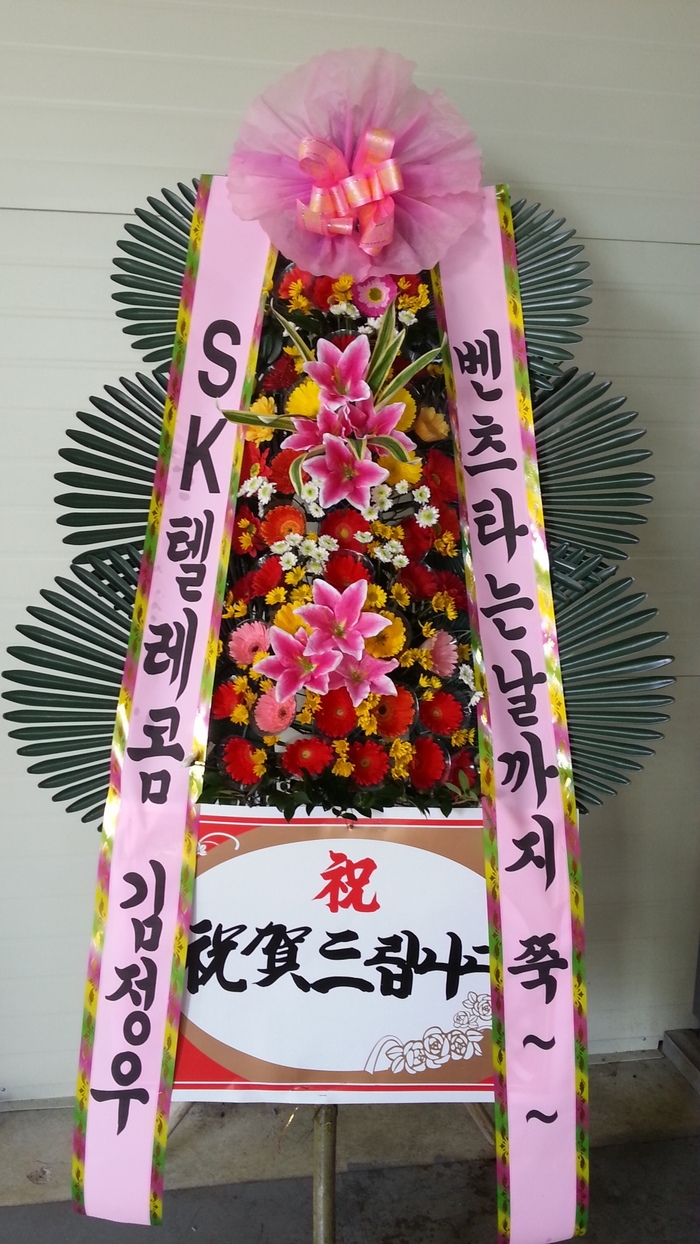 SK텔레콤 김정우
벤츠타는날까지 쭉~~
祝
祝賀드립니다